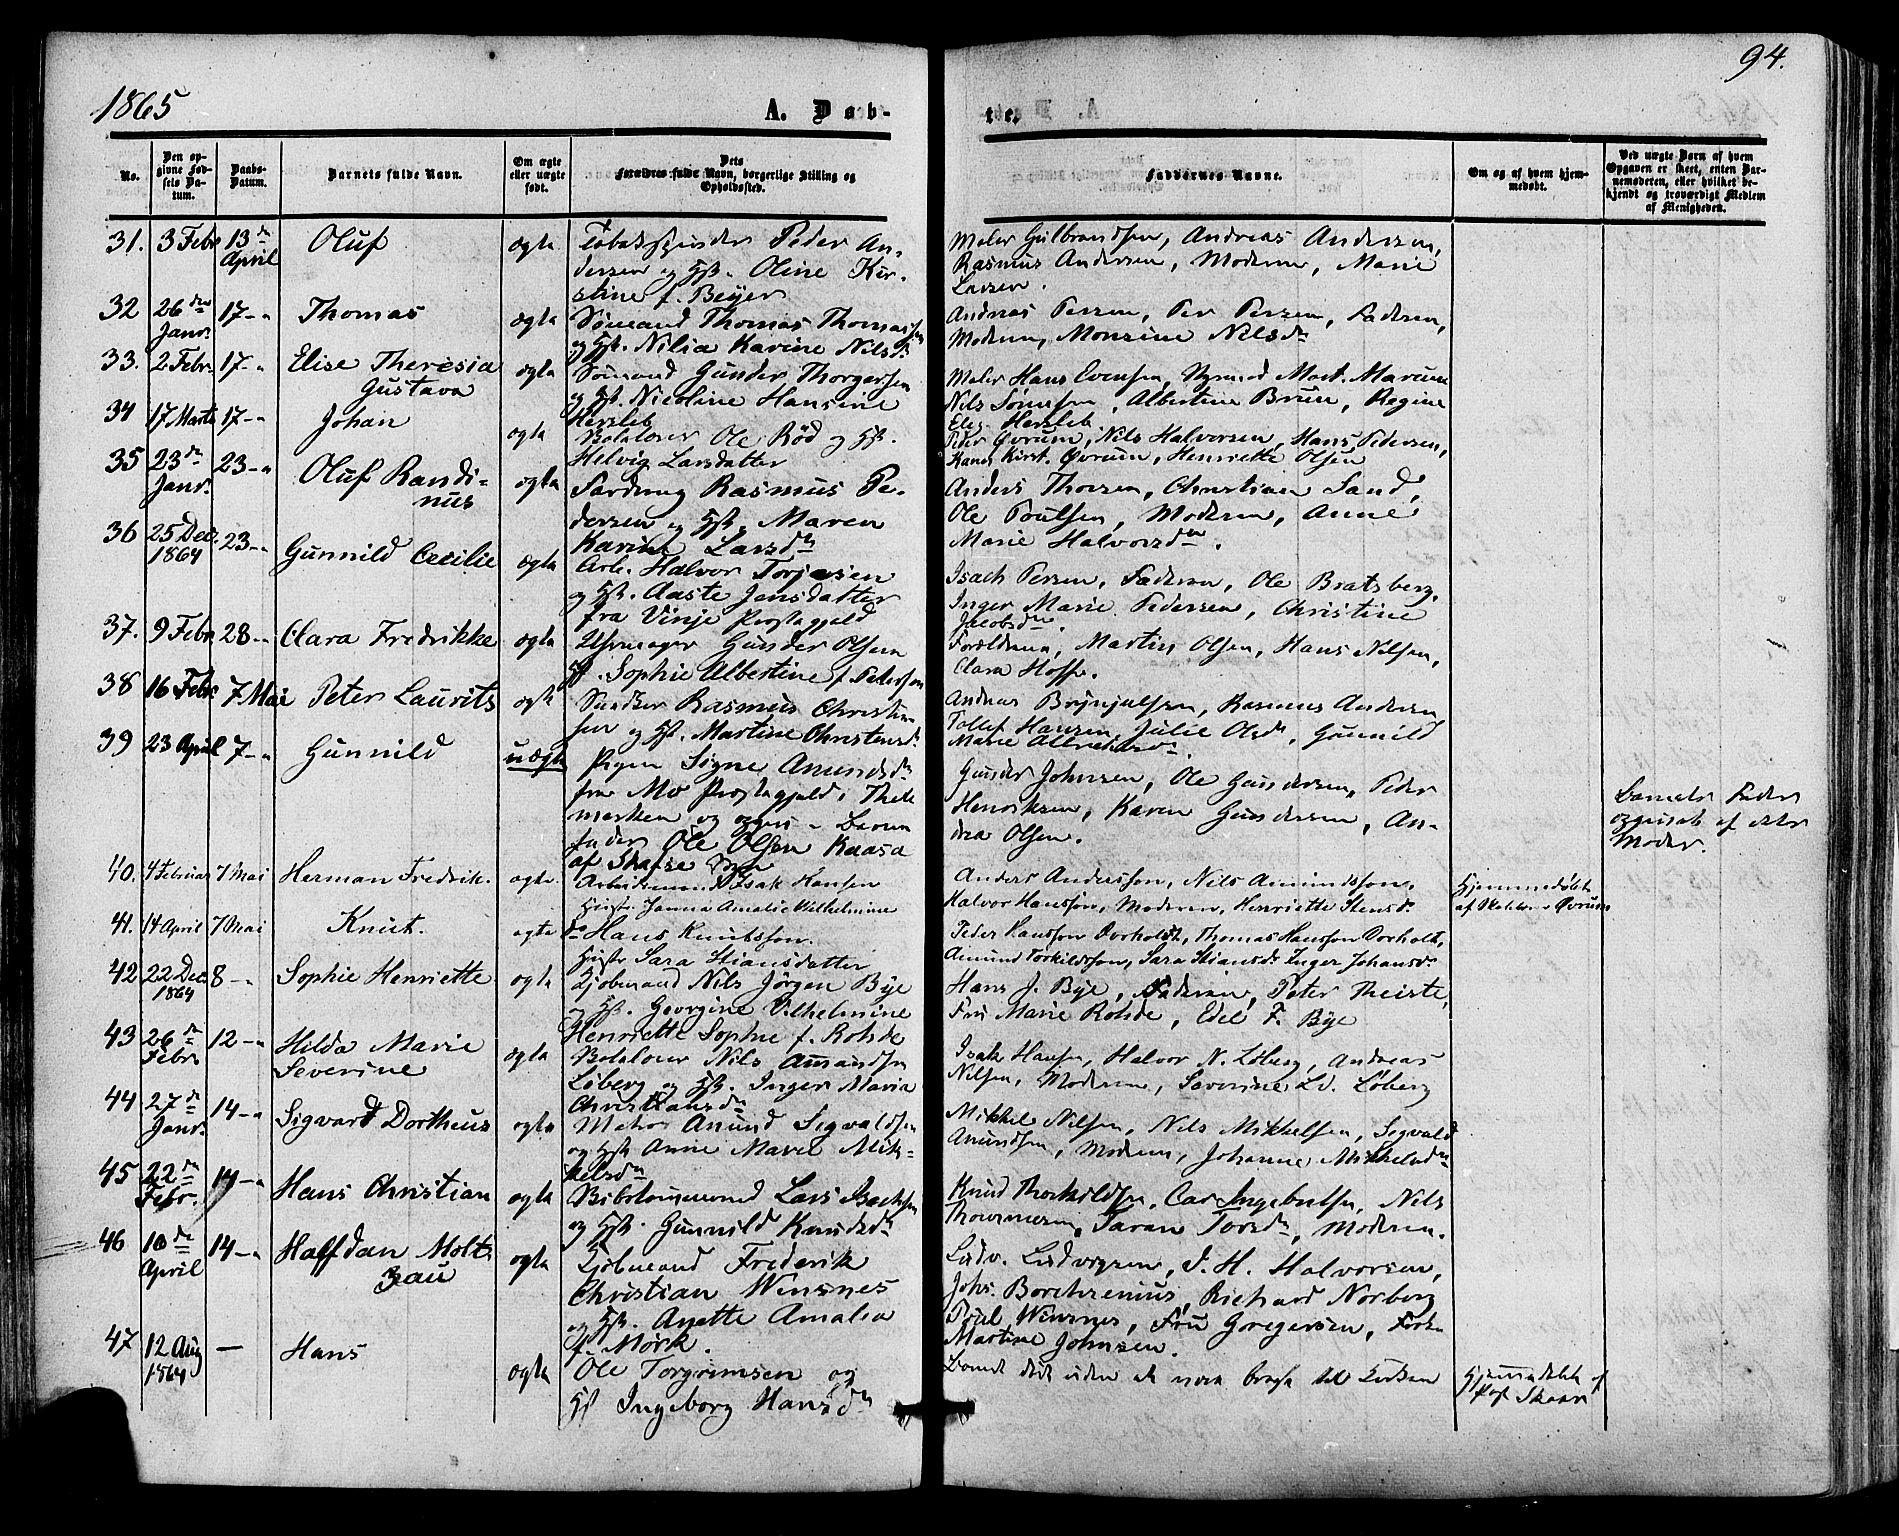 1865
A. Døb-
te.
94.
No.
Den op-
givne Fød-
sels Da-
tum.
Daabs-
Datum.
Barnets fulde Navn.
Om ægte
eller uægte
født.
Dets
Forældres fulde Navn, borgerlige Stilling og
Opholdssted.
Faddernes Navne.
Om og af hvem hjem-
medøbt.
Ved uægte Børn af hvem
Opgaven er skeet, enten Bar-
nemoderen, eller hvilket be-
kjendt og troværdigt Medlem
af Menigheden.
31. 3 Febr 13de April Oluf ægte Tobakspinder Peder An-
dersen og Hst. Oline Kir-
stine f. Beyer
Maler Gulbrandsen, Andreas Andersen,
Rasmus Andersen, Moderen, Marie
Larsen.
32 26de Janr. 17-" Thomas ægte Sømand Thomas Thomassen
og Hst. Nilia Karine Nilsdr
Andreas Persen, Per Persen, Faderen,
Moderen, Monsine Nilsdr
33. 2 Febr. 17-" Elise Theresia
Gustava ægte Sømand Gunder Thorgersen
og Hst. Nicoline Hansine
Hersleb
Maler Hans Evensen, Mart.
Nils Sørensen, Albertine Brun, Regine
Elis. Hersleb
34 17 Marts 17-" Johan ægte Ole Rød og Hst.
Helvig Larsdatter
Peder Øvrum, Nils Halvorsen, Hans Pedersen,
Karen Kirst. Øvrum, Henriette Olsen
35 23de Janr. 23-" Oluf Randi-
nus ægte Rasmus Pe-
dersen og Hst. Maren
Karine Larsdr
Anders Thorsen, Christian Sand,
Ole Poulsen, Moderen, Anne
Marie Halvorsdr.
36 25 Dec. 1864 23-" Gunnild Cecilie ægte Arb. Halvor Torjesen
og Hst. Aaste Jensdatter
fra Vinje Præstegjeld
Isach Persen, Faderen, Ole Bratsberg,
Inger Marie Pedersen, Christine
Jacobsdr.
37. 9 Febr 28-" Clara Fredrikke ægte Uhrmager Gunder Olsen
Hst. Sophie Albertine f. Pedersen
Forældrene, Martin Olsen, Hans Nilsen,
Clara Hoff.
38 16 Febr 7 Mai Peter Laurits ægte Rasmus Christen-
sen og Hst. Martine Christensdr
Andreas Brynjulsen, Rasmus Andersen
Tollef Hansen, Julie Olsdr, Gunnild
Marie
39 23 April 7-" Gunnild uægte Pigen Signe Amundsdr
fra Mo Præstegjeld i Thele-
marken og opgiv. - Barne-
fader Ole Olsen Kaasa
af
Gunder Johnsen, Ole Gundersen, Peder
Henriksen, Karen Gundersen, An-
drea Olsen.
Barnets Fader
opgivet af dets
Moder.
40. 4 Februar 7 Mai Herman Fredrik. ægte Arbeidsmand Isak Hansen
Hustr. Janna Amalie Wilhelmine
Anders Andersson, Nils Amundsson,
Halvor Hansson, Moderen, Henriette Stensdr
Hjemmedøbt
af Øvrum
41. 14 April 7 Mai Knut. ægte do Hans Knutsson.
Hustr Sara Stiansdatter
Peder Hansson Dorholt, Thomas Hansson Dorholt,
Amund Torkildsson, Sara Stiansdr Inger Johansdr
42 22 Dec. 1864 8-" Sophie Henriette ægte Kjøbmand Nils Jörgen Bye
og Hst. Georgine Vilhelmine
Henriette Sophie f. Rohde
Hans J. Bye, Faderen, Peter Theiste,
Fru Marie Rohde, Edel F. Bye
43 26de Febr. 12-" Hilda Marie
Severine ægte Nils Amundsen
Løberg og Hst. Inger Maria
Christiansdr
Isak Hansen, Halvor N. Løberg, Andreas
Nilsen, Moderen, Severine Løberg
44 27de Janr. 14-" Sigvard Dortheus ægte Anund Sigvaldsen
og Hst Anne Marie Mik-
kelsdr
Mikkel Nilsen, Nils Mikkelsen, Sigvald
Anundsen, Moderen, Johanne Mikkelsdr
45 22de Febr. 14-" Hans Christian ægte Lars
og Hst. Gunnild Knudsdr
Knud Thorkildsen, Ingebretsen, Nils
Taran Torsdr, Moderen.
46 10de April 14-" Halfdan Molt-
zau ægte Kjøbmand Frederik
Christian Wensnes
og Hst. Anette Amalia
f. Mørk.
Ludv. Ludvigsen, J. H. Halvorsen,
Johs. Borchsenius, Richard Norberg
Poul Wensnes, Fru Gregersen,
Martine Johnsen.
47 12 Aug 1864 — Hans ægte Ole Torgrimsen og
Hst Ingeborg Hansdr
Barnet døde uden at være bragt til Kirken
Hjemmedøbt af